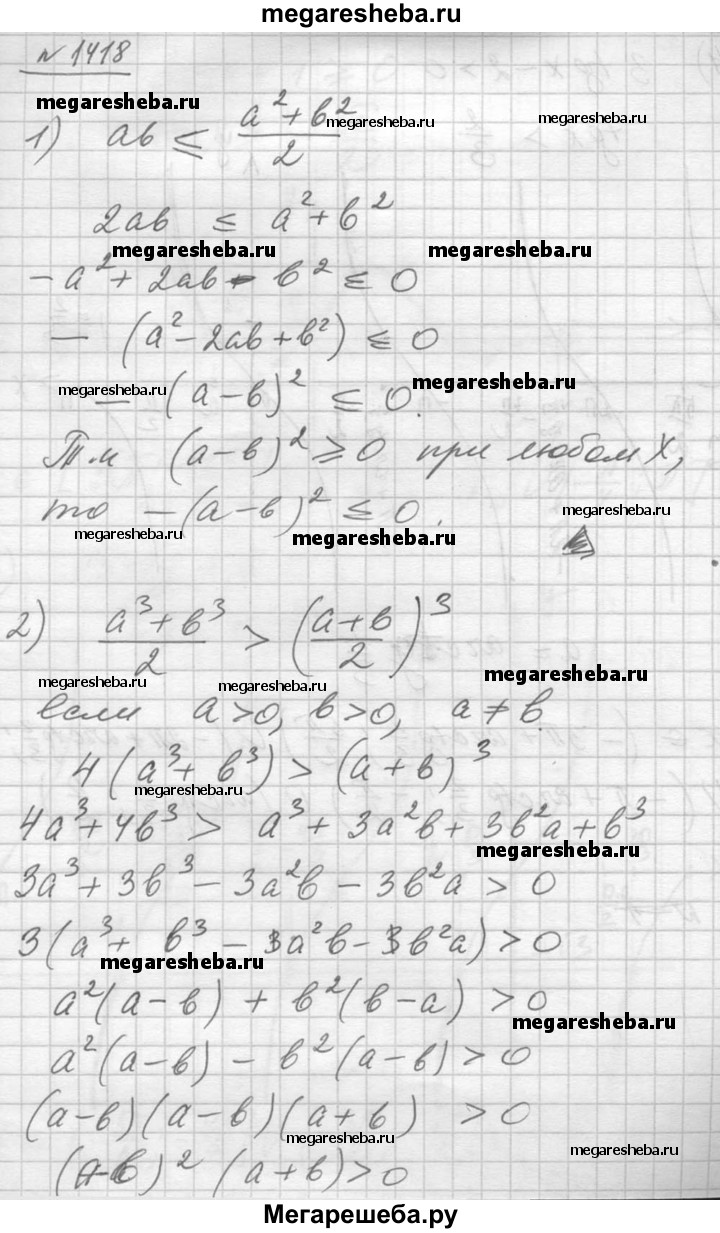 megaresheba.ru
№ 1418
megaresheba.ru
1) ab ≤ (a² + b²)/2
megaresheba.ru
megaresheba.ru
2ab ≤ a² + b²
megaresheba.ru
megaresheba.ru
- a² + 2ab - b² ≤ 0
- (a² - 2ab + b²) ≤ 0
megaresheba.ru
megaresheba.ru
- (a - b)² ≤ 0.
Т.к (a - b)² ≥ 0 при любом X,
то - (a - b)² ≤ 0.
megaresheba.ru
megaresheba.ru
megaresheba.ru
2) (a³ + b³)/2 > ((a + b)/2)³
megaresheba.ru
megaresheba.ru
megaresheba.ru
если a > 0, b > 0, a ≠ b.
4(a³ + b³) > (a + b)³
megaresheba.ru
4a³ + 4b³ > a³ + 3a²b + 3b²a + b³
megaresheba.ru
3a³ + 3b³ - 3a²b - 3b²a > 0
3(a³ + b³ - 3a²b - 3b²a) > 0
megaresheba.ru
a²(a - b) + b²(b - a) > 0
megaresheba.ru
a²(a - b) - b²(a - b) > 0
(a - b)(a - b)(a + b) > 0
megaresheba.ru
megaresheba.ru
(a - b)² (a + b) > 0
Мегарешеба.ру